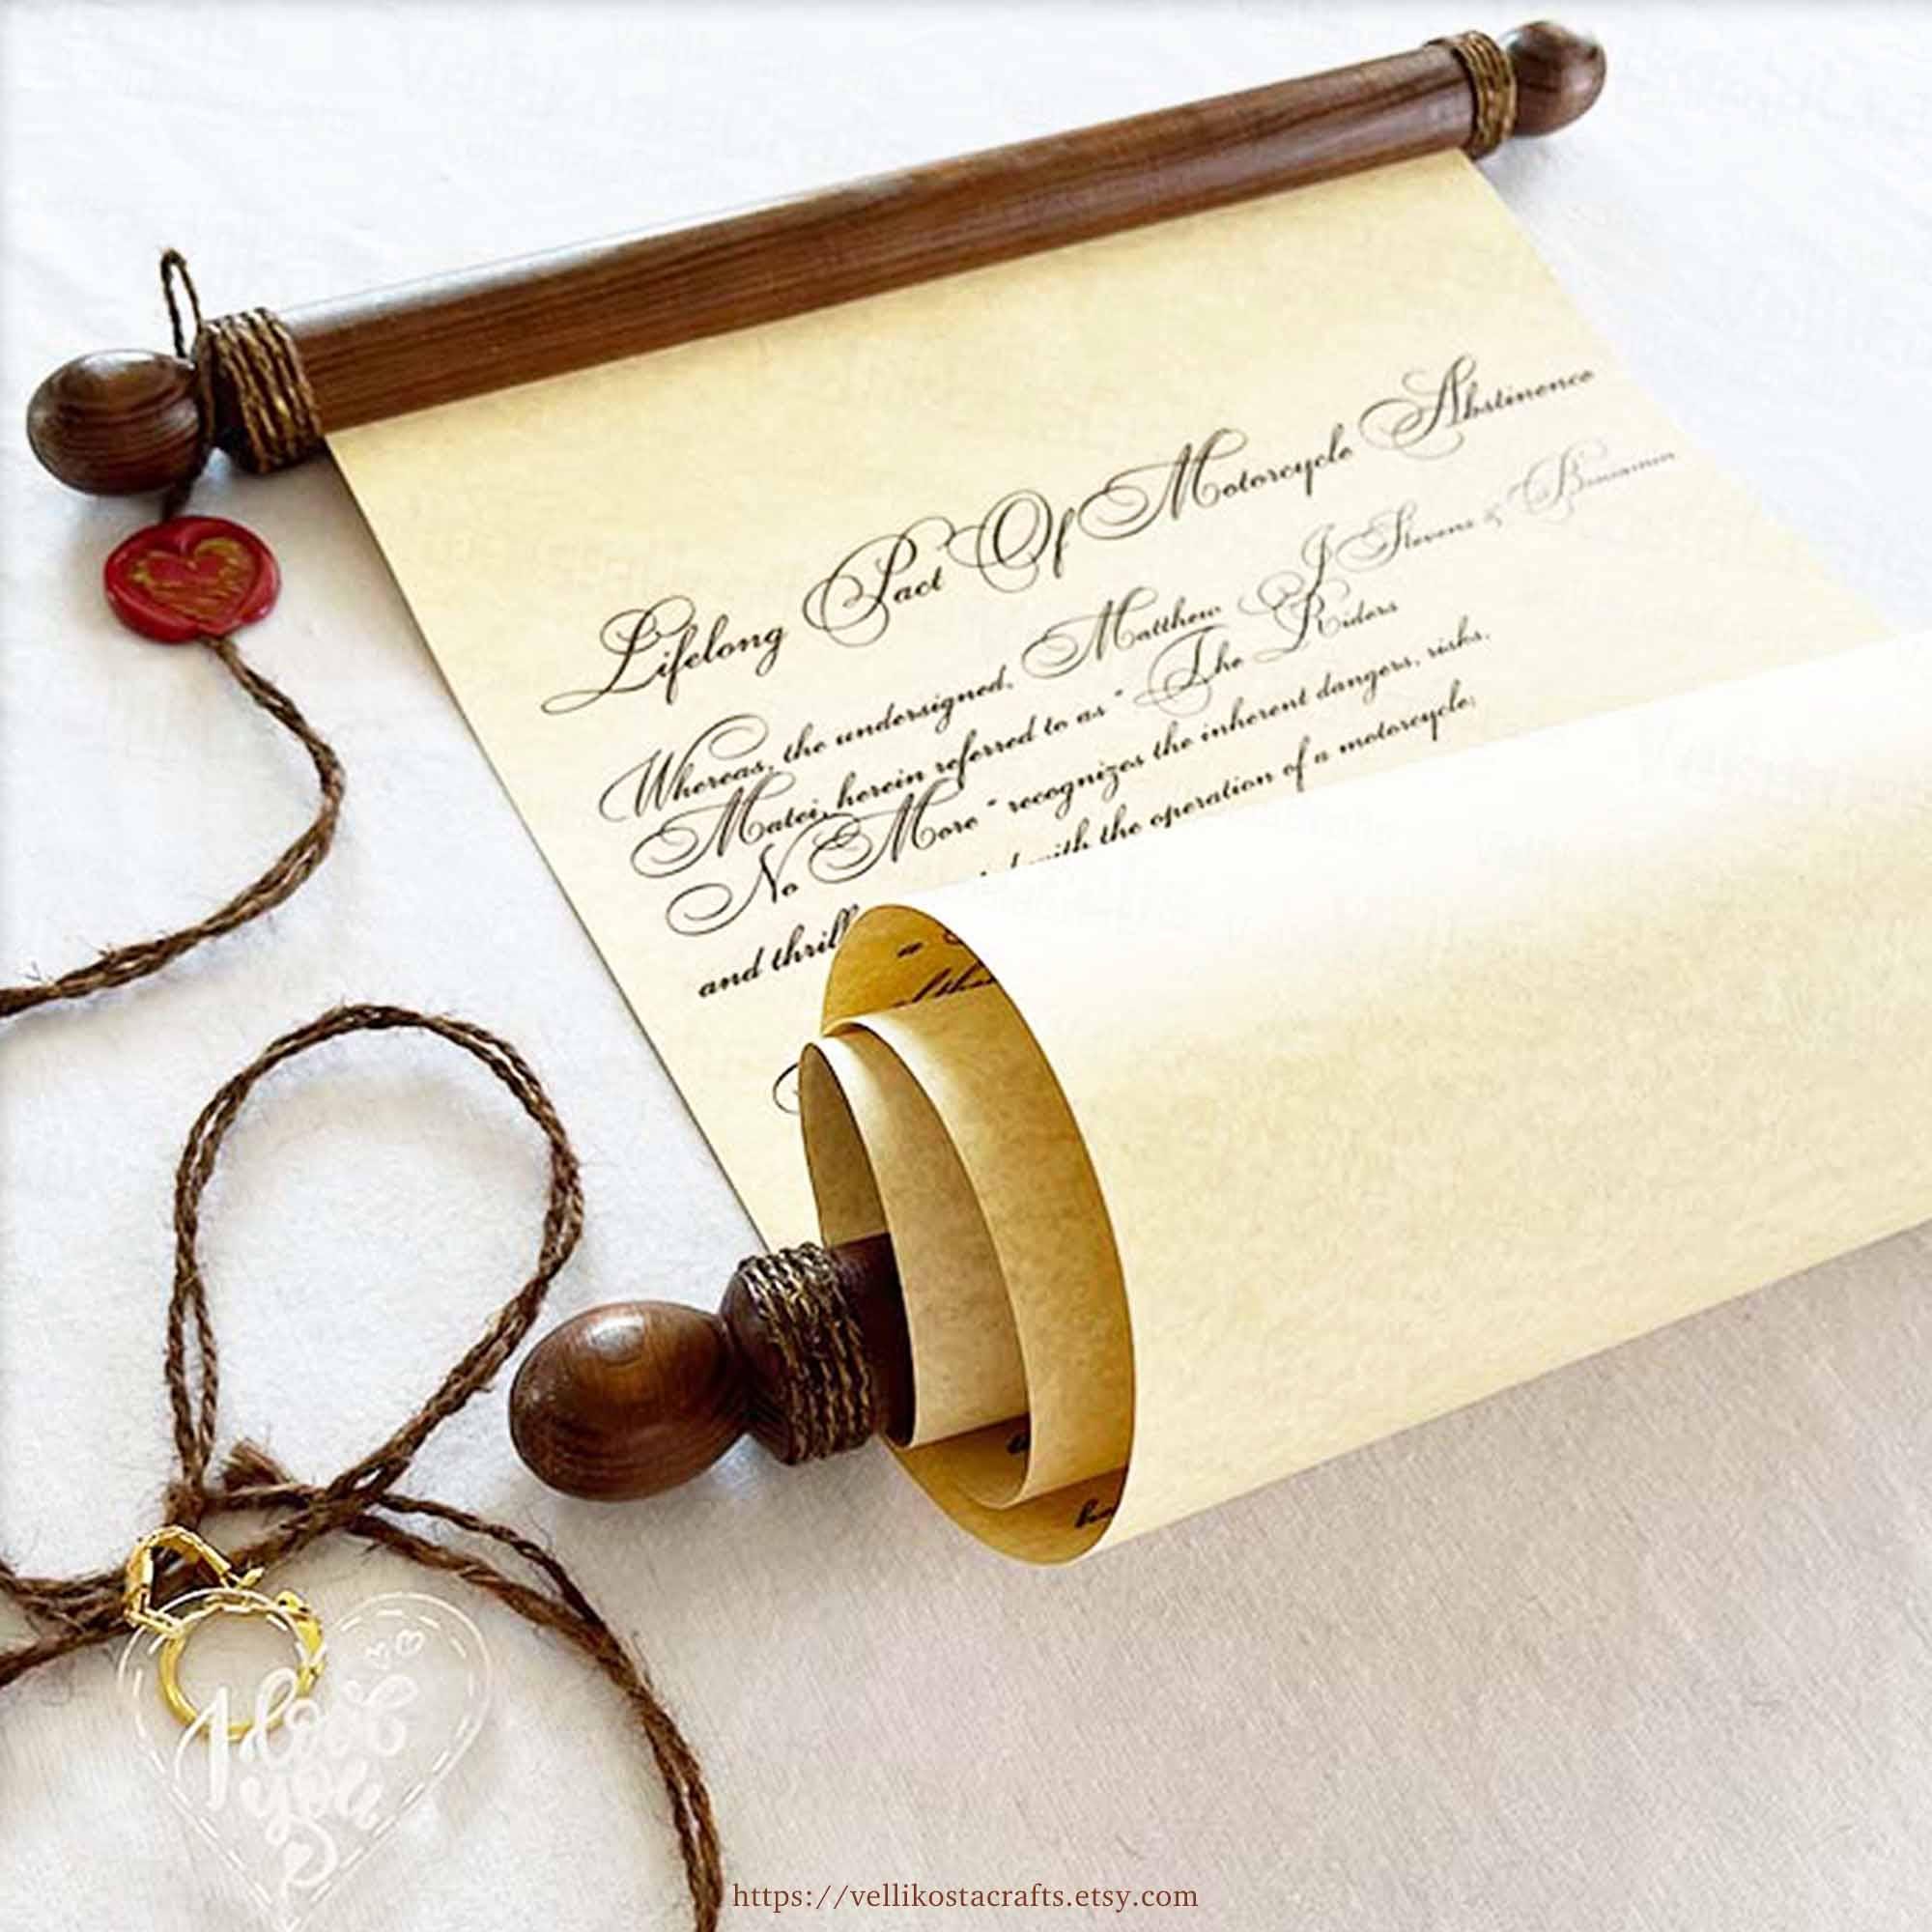 Lifelong Pact Of Motorcycle Abstinence
Whereas, the undersigned, Matthew J Stevens & Benjamin
Matei, herein referred to as " The Riders
No More " recognizes the inherent dangers, risks,
and thrill with the operation of a motorcycle;
I love you
https://vellikostacrafts.etsy.com